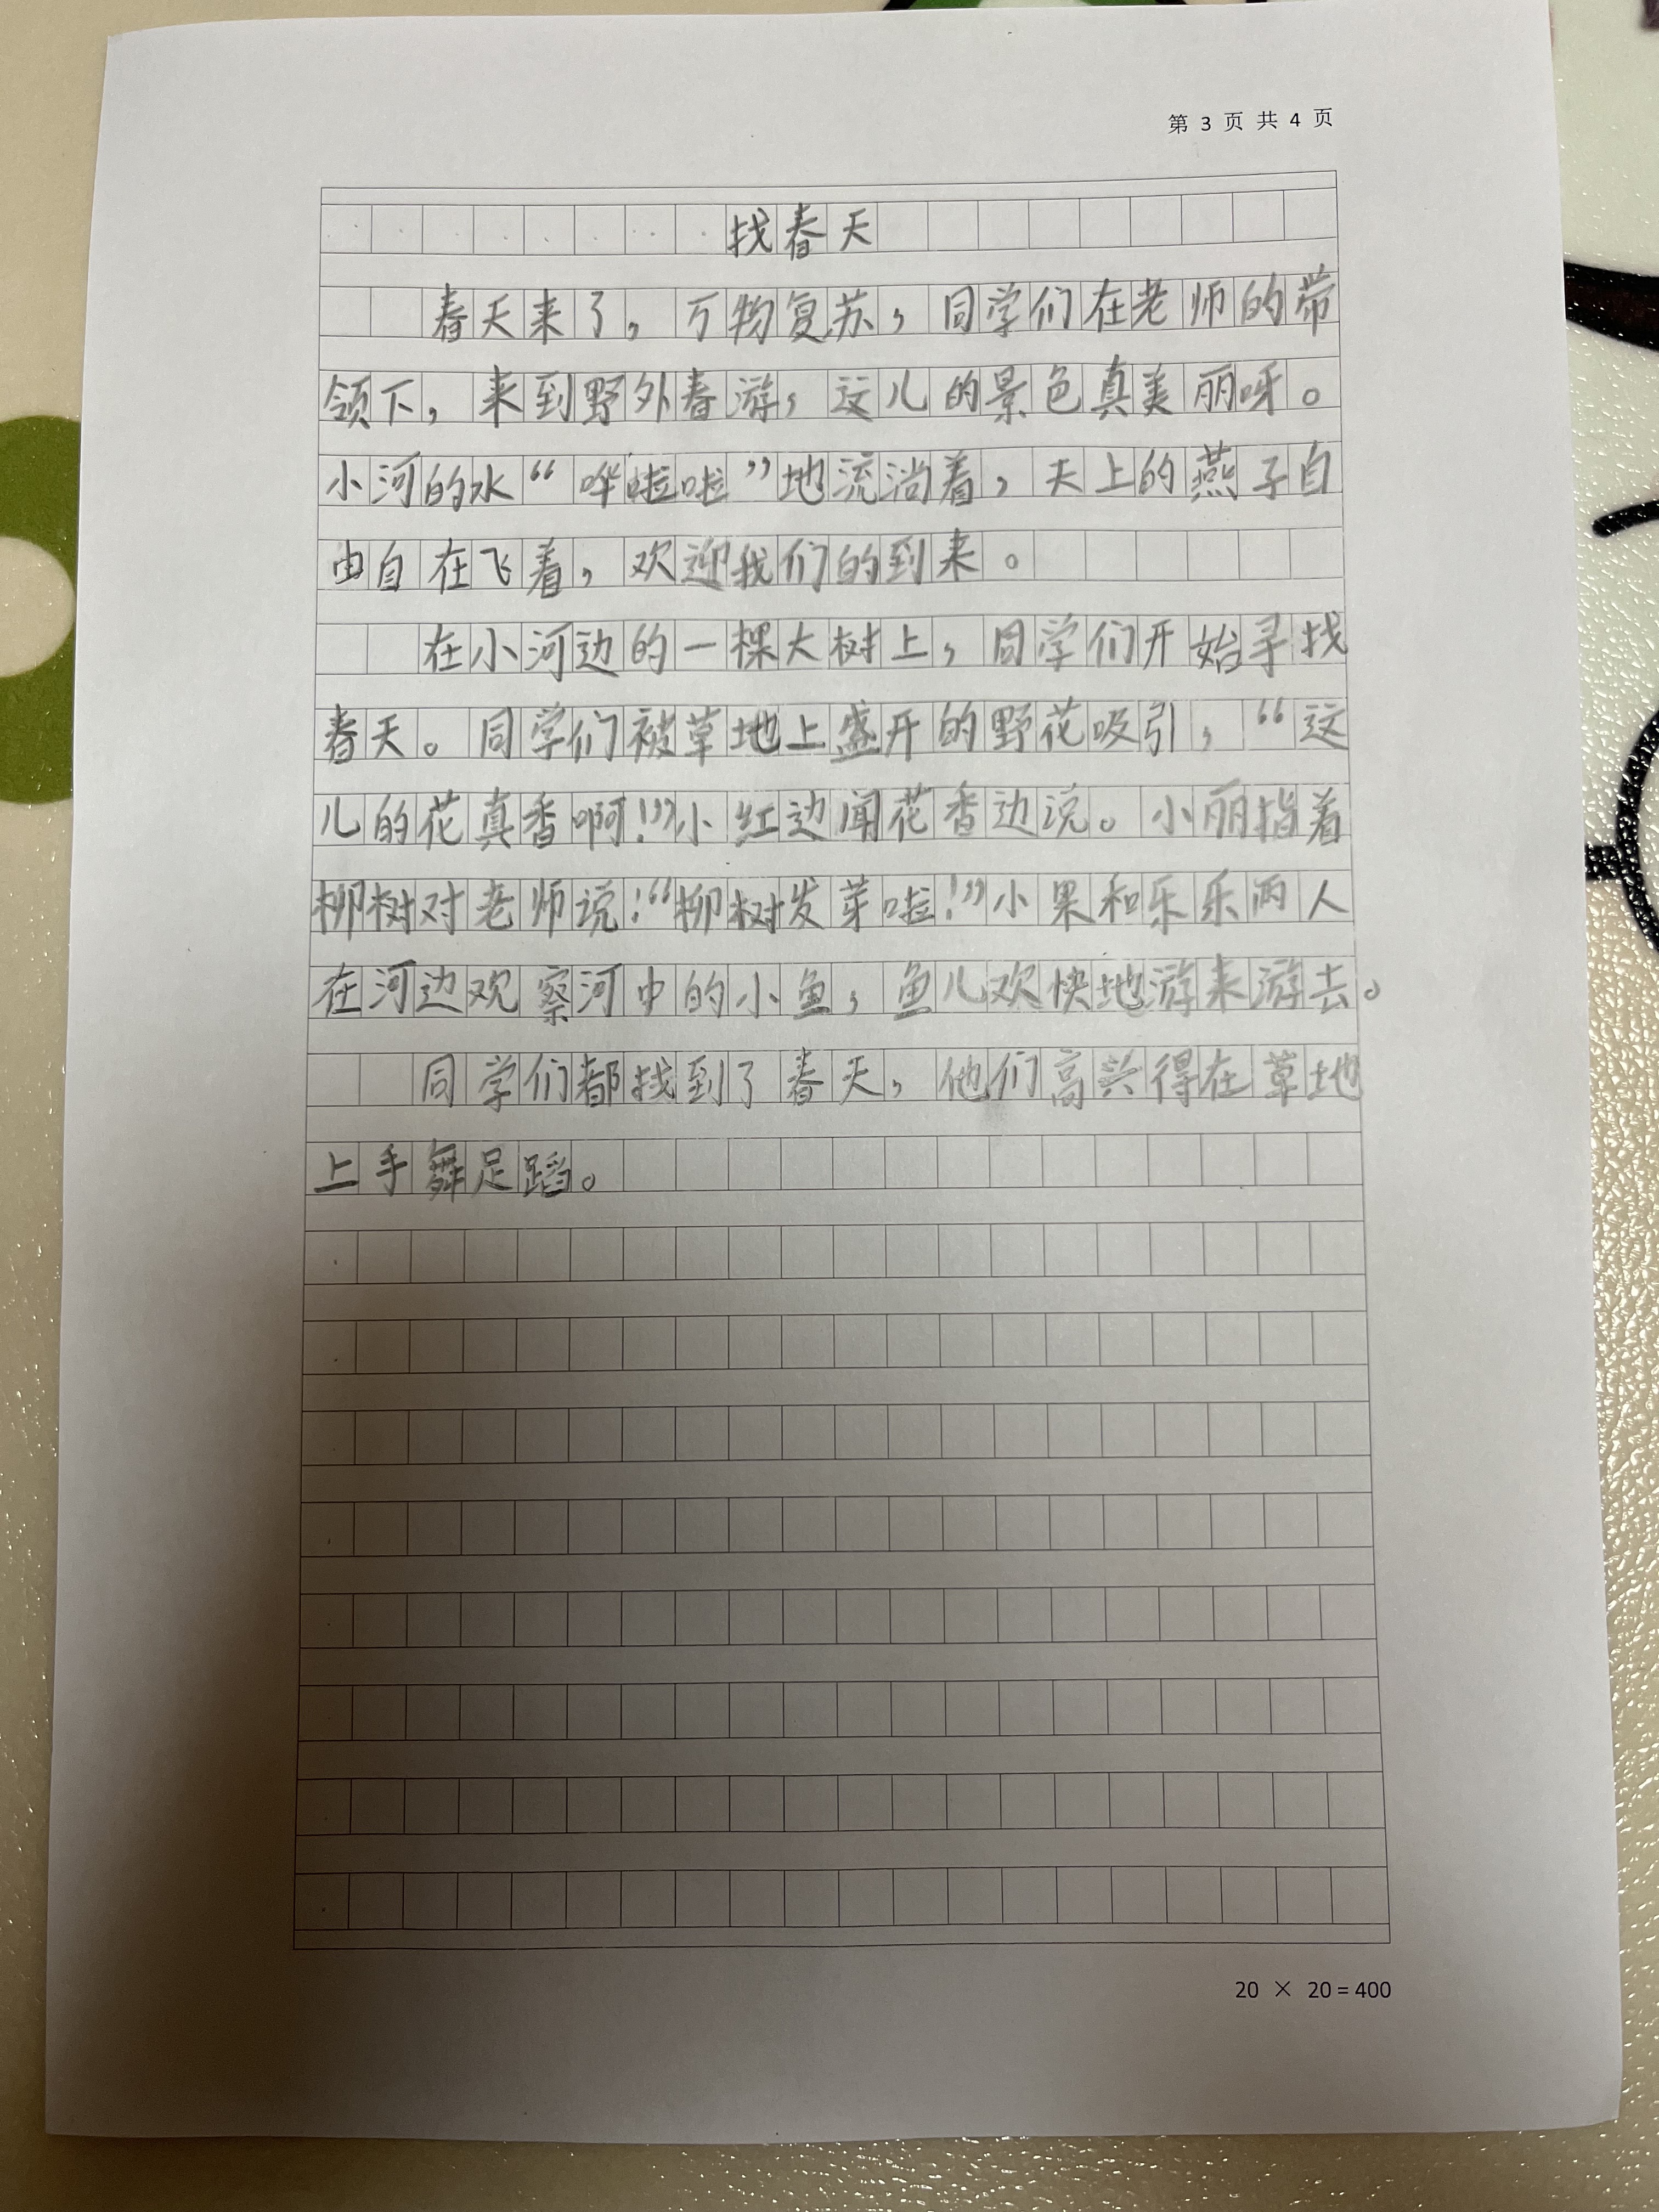 第 3 页 共 4 页
找春天
春天来了，万物复苏，同学们在老师的带
领下，来到野外春游，这儿的景色真美丽呀。
小河的水“哗啦啦”地流淌着，天上的燕子自
由自在飞着，欢迎我们的到来。
在小河边的一棵大树上，同学们开始寻找
春天。同学们被草地上盛开的野花吸引，“这
儿的花真香啊！”小红边闻花香边说。小丽指着
柳树对老师说：“柳树发芽啦！”小果和乐乐两人
在河边观察河中的小鱼，鱼儿欢快地游来游去。
同学们都找到了春天，他们高兴得在草地
上手舞足蹈。
20 × 20 = 400